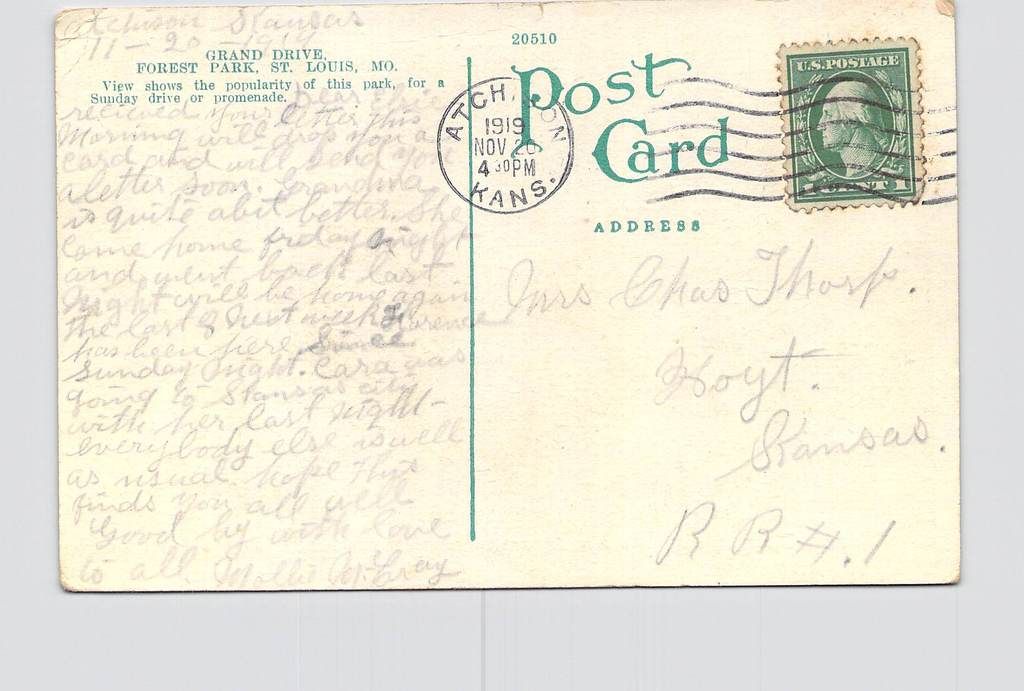 Atchison Kansas
11-20-1919
GRAND DRIVE,
FOREST PARK, ST. LOUIS, MO.
View shows the popularity of this park, for a
Sunday drive or promenade.
recieved your letter this
Morning will drop you a
card and will send you
a letter soon. Grandma
is quite abit better. She
come home friday night
and went back last
Night will be home again
the last of next week Florence
has been here since
Sunday night. Cara was
going to Kansas city
with her last night-
everybody else is well
as usual. hope this
finds you all well
Good by with love
to all. Mollie McGray
20510
Post
Card
ATCHISON
1919
NOV 20
4 30 PM
KANS.
U.S. POSTAGE
1 CENT 1
ADDRESS
Mrs Chas Thorp.
Hoyt.
Kansas.
R R #. 1